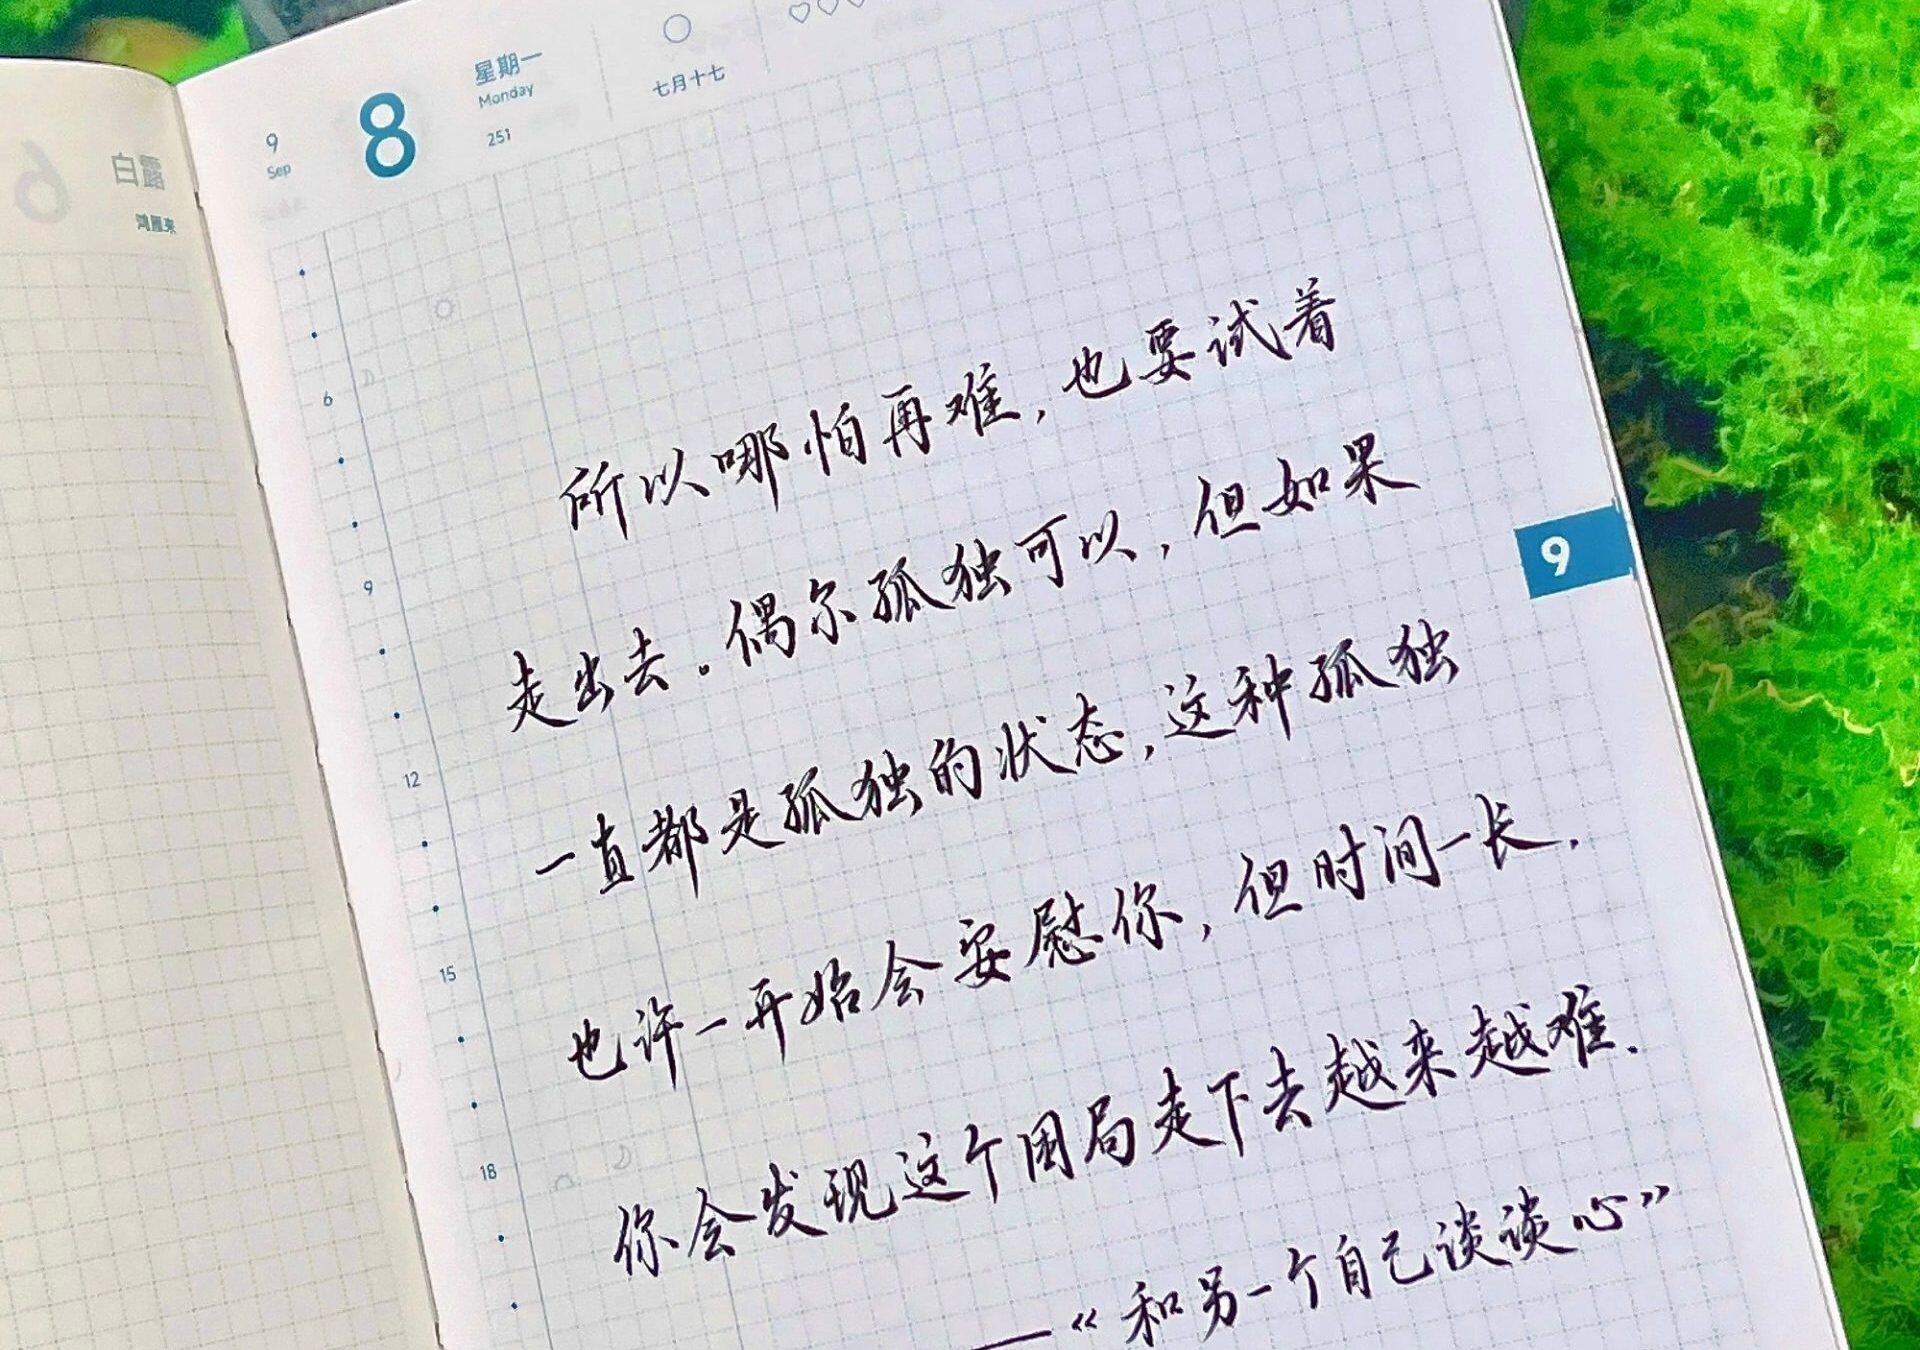 白露
鸿雁来
9
Sep
8
星期一
Monday
251
七月十七
6
9
12
15
18
9
所以哪怕再难,也要试着
走出去。偶尔孤独可以,但如果
一直都是孤独的状态,这种孤独
也许一开始会安慰你,但时间一长.
你会发现这个困局走下去越来越难.
——《和另一个自己谈谈心》